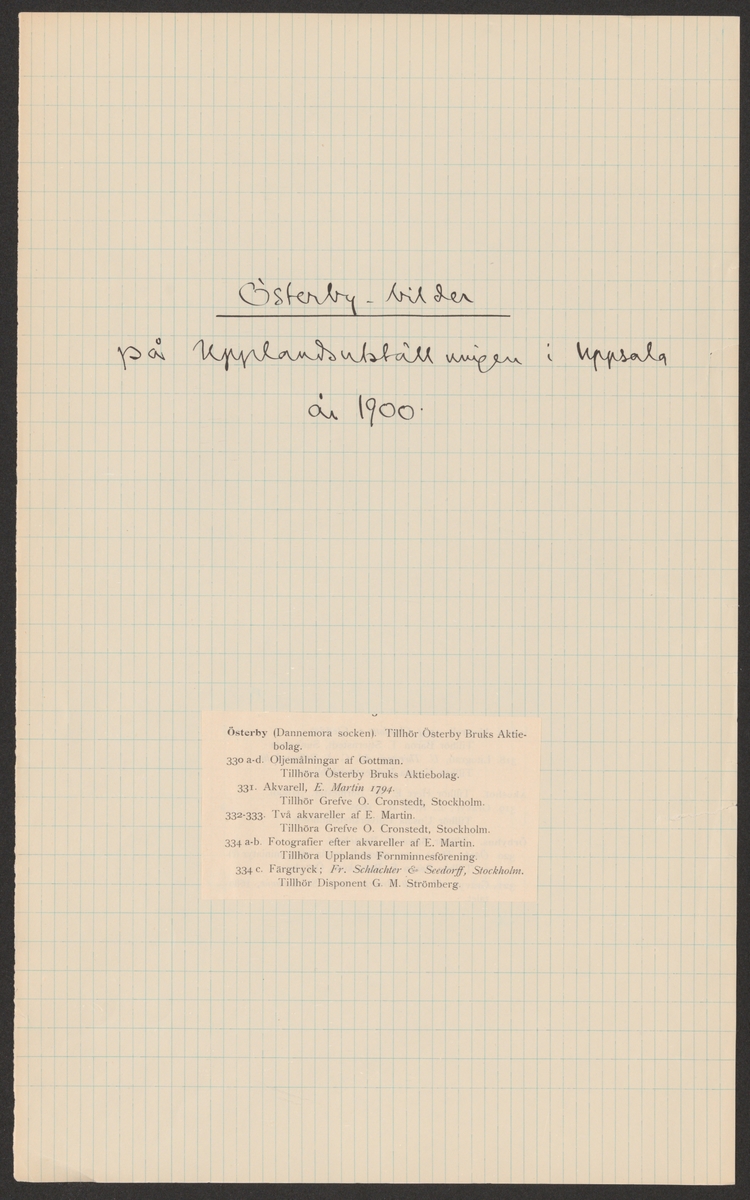 Österby - bilder
på Upplandsutställningen i Uppsala
år 1900.
Österby (Dannemora socken). Tillhör Österby Bruks Aktie-
bolag.
330 a-d. Oljemålningar af Gottman.
Tillhöra Österby Bruks Aktiebolag.
331. Akvarell, E. Martin 1794.
Tillhör Grefve O. Cronstedt, Stockholm.
332-333. Två akvareller af E. Martin.
Tillhöra Grefve O. Cronstedt, Stockholm.
334 a-b. Fotografier efter akvareller af E. Martin.
Tillhöra Upplands Fornminnesförening.
334 c. Färgtryck; Fr. Schlachter & Seedorff, Stockholm.
Tillhör Disponent G. M. Strömberg